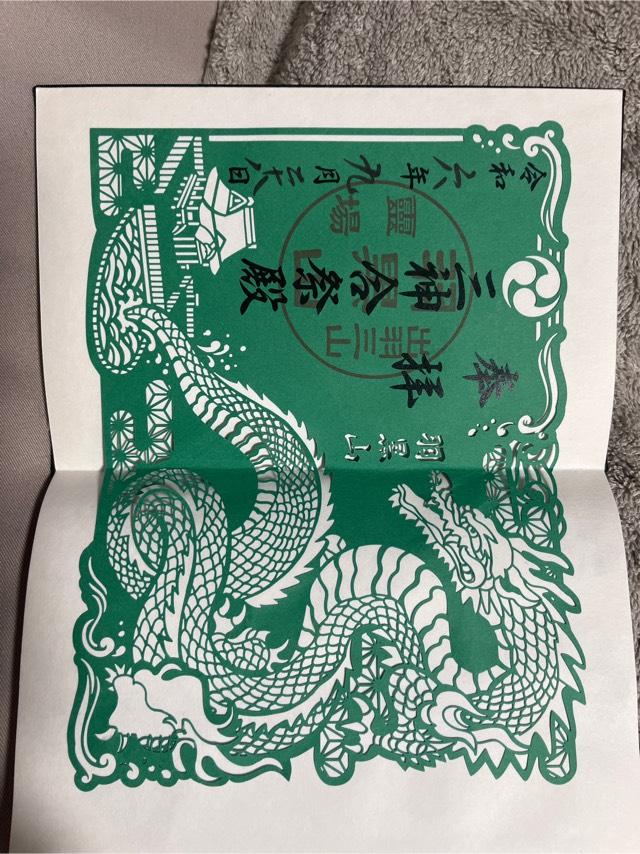 羽黒山
奉拝
出羽三山
三神合祭殿
靈場
令和六年九月二十八日